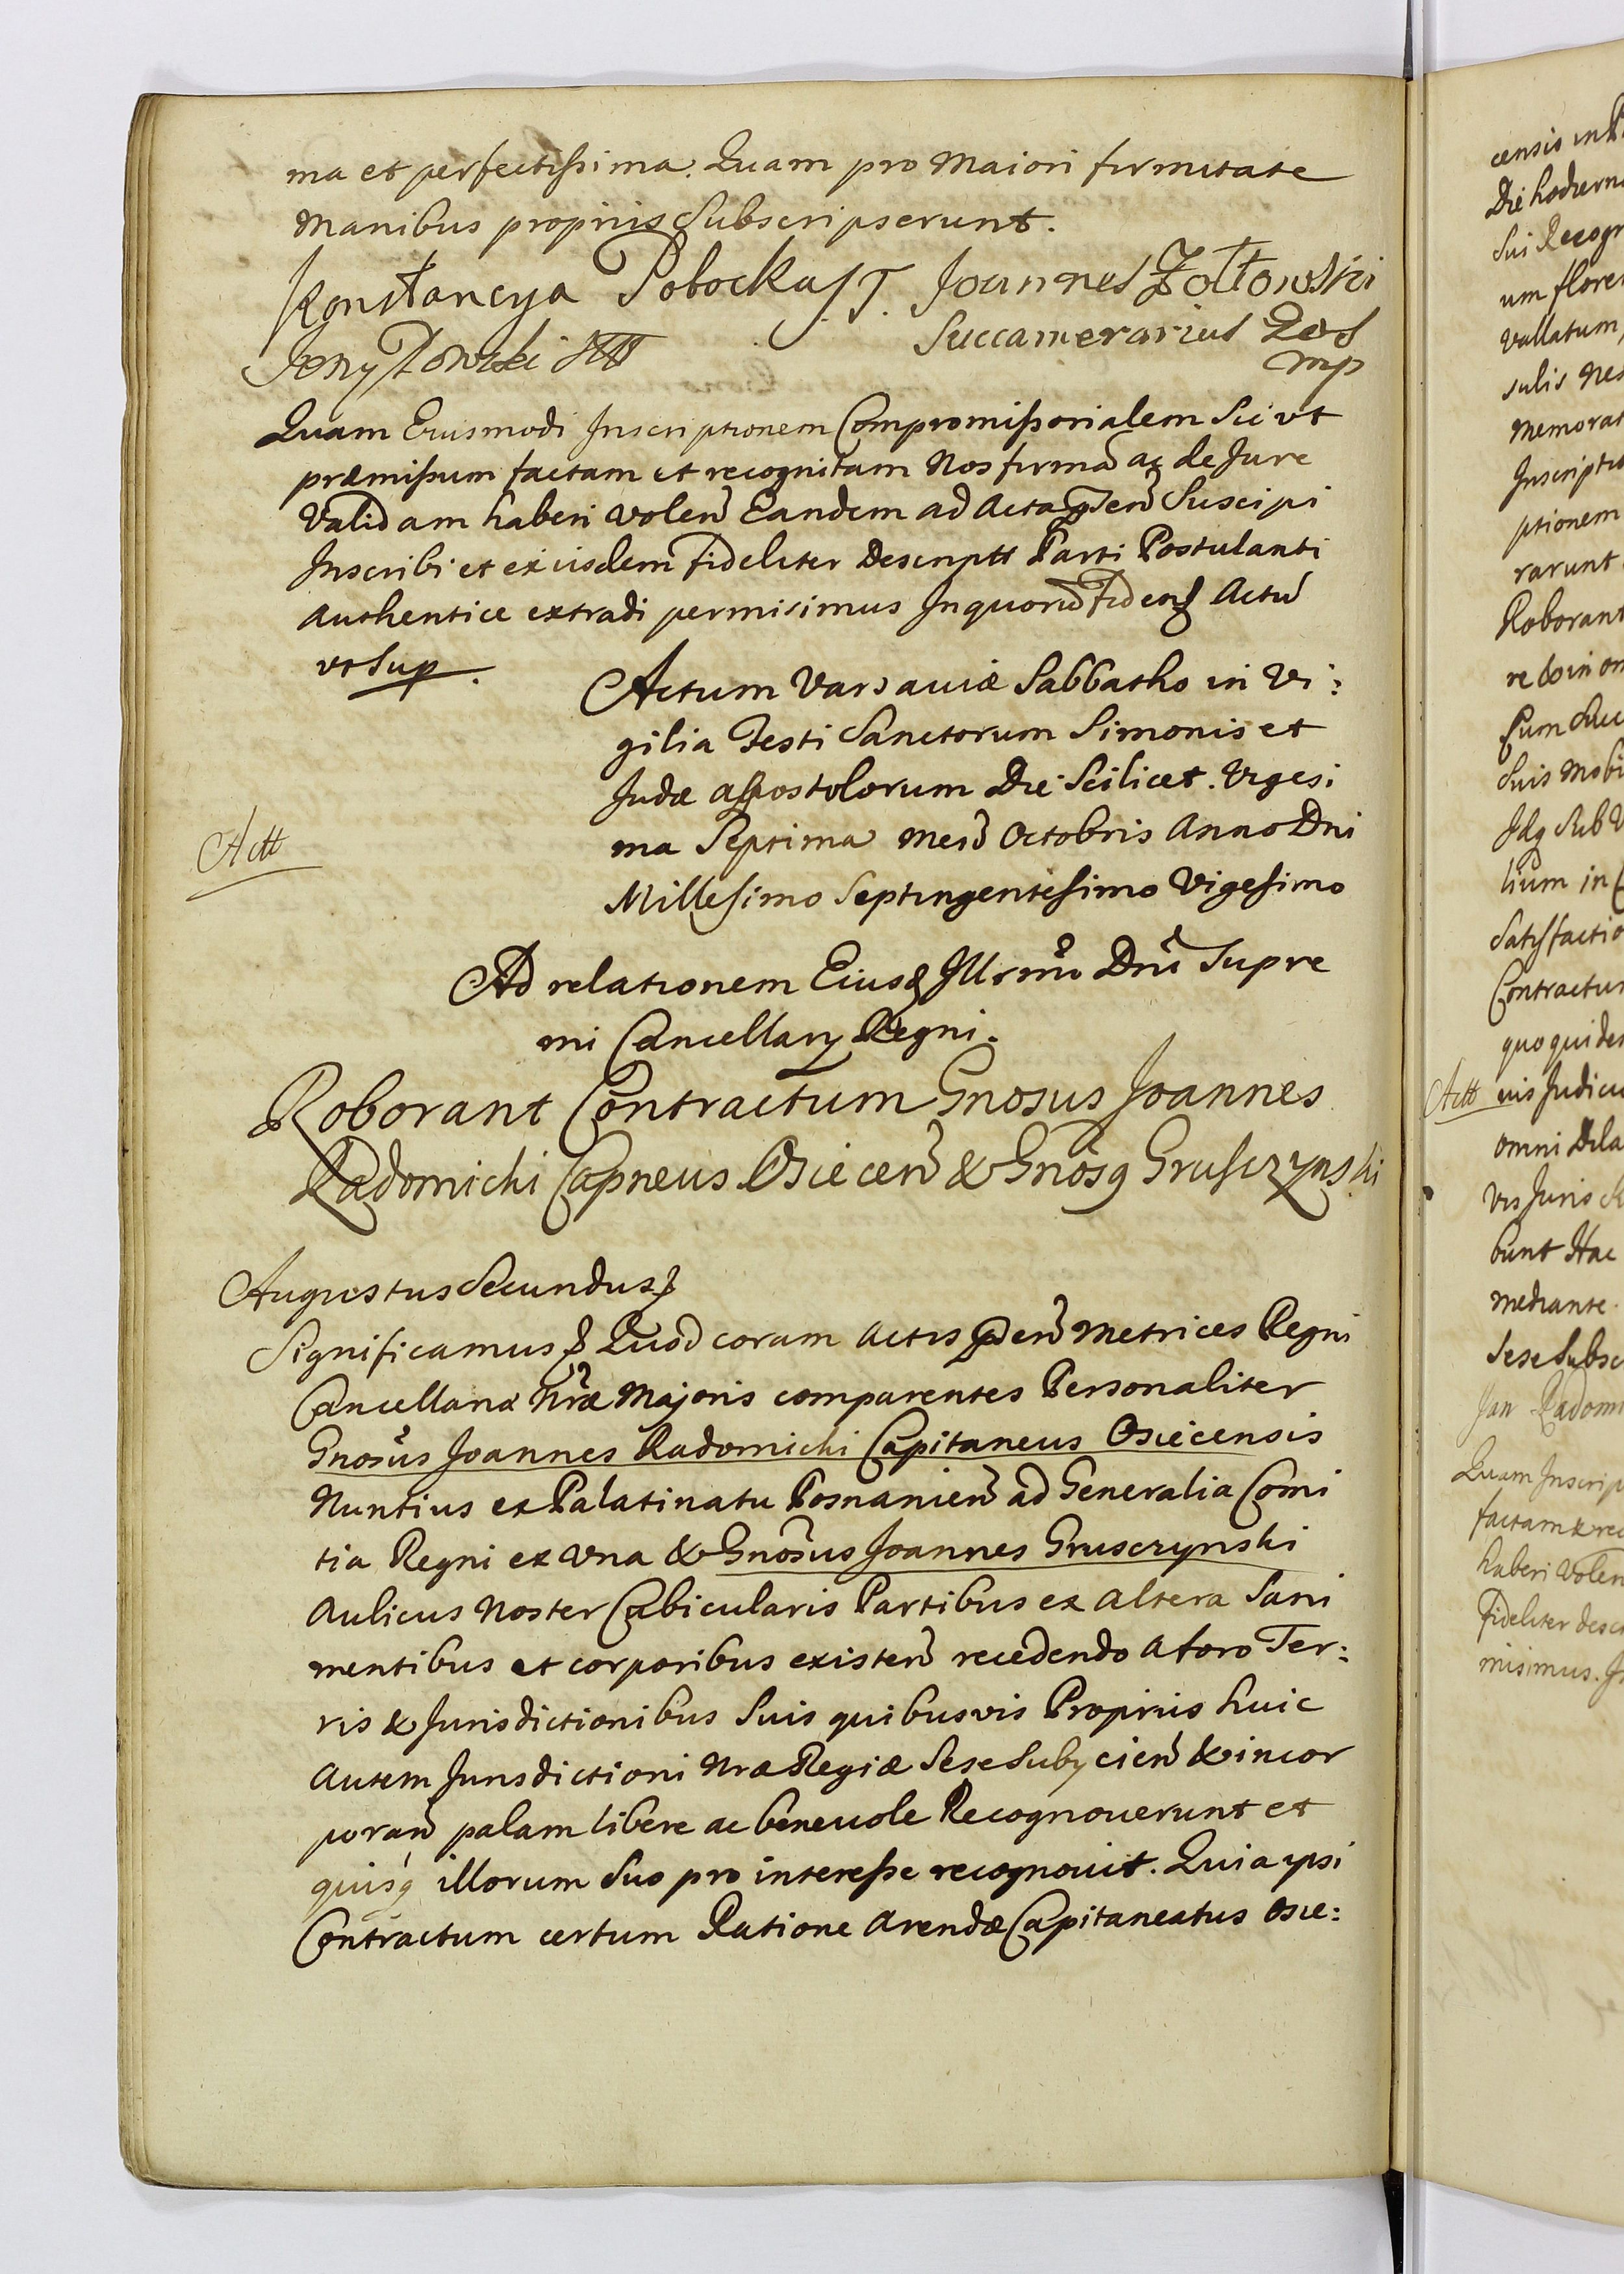 ma et perfectissima. Quam pro Maiori firmitate
Manibus proprijs Subscripserunt.
Konstancya Pobocka
Joannes Żołtowski
Succamerarius
mp
Quam Eiusmodi Inscriptionem Compromissorialem Sic vt
præmissum factam et recognitam Nos firmã ac de Jure
Validam haberi volen̄ Eandem ad Acta p̄n̄ Suscipi
Inscribi et exijsdem fideliter Descriptt Parti Postulanti
Authentice extradi permisimus In quorū Fidem Actū
vt Sup.
Actum Varsaviæ Sabbatho in Vi:
gilia Festi Sanctorum Simonis et
Judæ Apostolorum Die Scilicet. Vigesi
ma Septima Mens̄ Octobris Anno Dni
Millesimo Septingentesimo Vigesimo
Actt
Ad relationem Eiusd Illrmi Dni Supre
mi Cancellarij Regni.
Roborant Contractum Gnosus Joannes
Radomichi Capneus Osiecen̄ & Gnosq Grusczynski
Augustus Secundus
Significamus Quod coram Actis p̄n̄ Metrices Regni
Cancellariæ Nræ Majoris comparentes Personaliter
Gnosus Joannes Radomichi Capitaneus Osiecensis
Nuntius ex Palatinatu Posnanien̄ ad Generalia Comi
tia Regni ex Vna & Gnosus Joannes Grusczynski
Aulicus Noster Cubicularis Partibus ex Altera Sani
mentibus et corporibus existen̄ recedendo a foro Ter:
ris & Jurisdictionibus Suis quibusvis Proprijs huic
Autem Jurisdictioni Nræ Regiæ Sese Subijcien̄ & incor
poran̄ palam libere ac beneuole Recognouerunt et
quisq illorum Suo pro interesse recognouit. Quia ipsi
Contractum certum Ratione Arendæ Capitaneatus Osie:
Die hodiern
Sui Recogn
um flore
Vallatum
Memorat
Inscriptio
ptionem
rarunt
Roborant
Suis Mobi
lium in
Satisfactio
Contractu
quo quide
Actt
uis Judicu
omni Dila
vis Juris
bunt Hac
mediante
Sese Subsc
Jan Radomi
Quam Inscrip
factam & rec
haberi Volen
Fideliter desc
misimus.